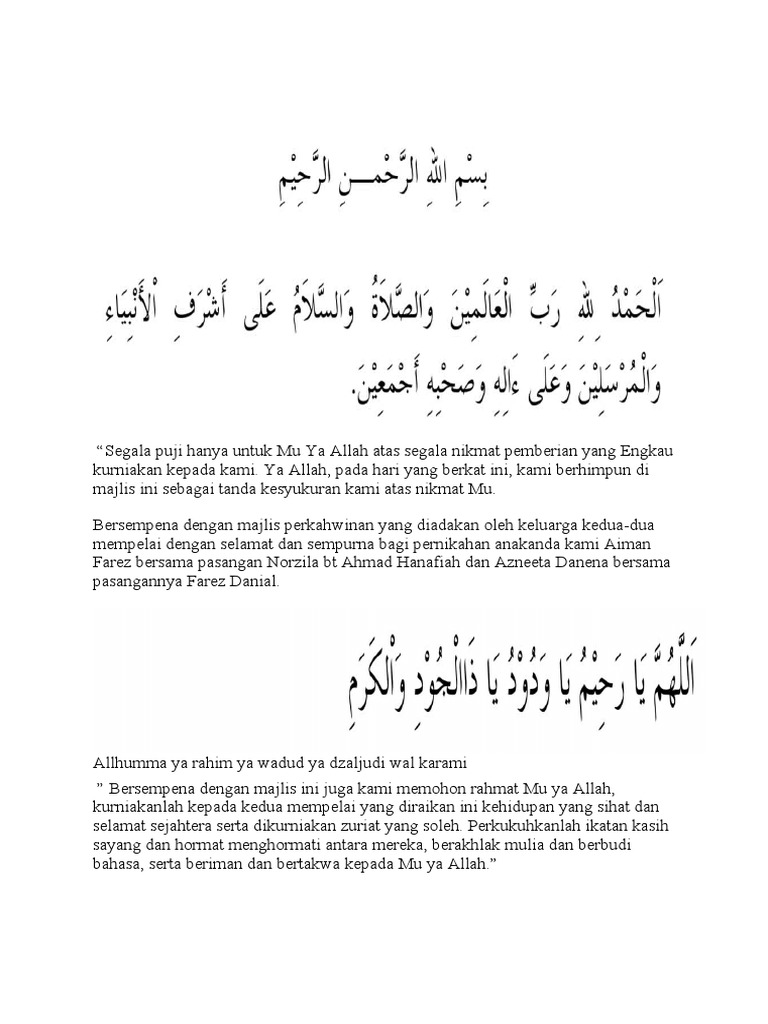 بِسْمِ اللهِ الرَّحْمـــنِ الرَّحِيْمِ
اَلْحَمْدُ لِلهِ رَبِّ الْعَالَمِيْنَ وَالصَّلاَةُ وَالسَّلاَمُ عَلَى أَشْرَفِ اْلأَنْبِيَاءِ
وَالْمُرْسَلِيْنَ وَعَلَى ءَالِهِ وَصَحْبِهِ أَجْمَعِيْنَ.
“Segala puji hanya untuk Mu Ya Allah atas segala nikmat pemberian yang Engkau
kurniakan kepada kami. Ya Allah, pada hari yang berkat ini, kami berhimpun di
majlis ini sebagai tanda kesyukuran kami atas nikmat Mu.
Bersempena dengan majlis perkahwinan yang diadakan oleh keluarga kedua-dua
mempelai dengan selamat dan sempurna bagi pernikahan anakanda kami Aiman
Farez bersama pasangan Norzila bt Ahmad Hanafiah dan Azneeta Danena bersama
pasangannya Farez Danial.
اَللَّهُمَّ يَا رَحِيْمُ يَا وَدُوْدُ يَا ذَاالْجُوْدِ وَاْلكَرَمِ
Allhumma ya rahim ya wadud ya dzaljudi wal karami
” Bersempena dengan majlis ini juga kami memohon rahmat Mu ya Allah,
kurniakanlah kepada kedua mempelai yang diraikan ini kehidupan yang sihat dan
selamat sejahtera serta dikurniakan zuriat yang soleh. Perkukuhkanlah ikatan kasih
sayang dan hormat menghormati antara mereka, berakhlak mulia dan berbudi
bahasa, serta beriman dan bertakwa kepada Mu ya Allah.”